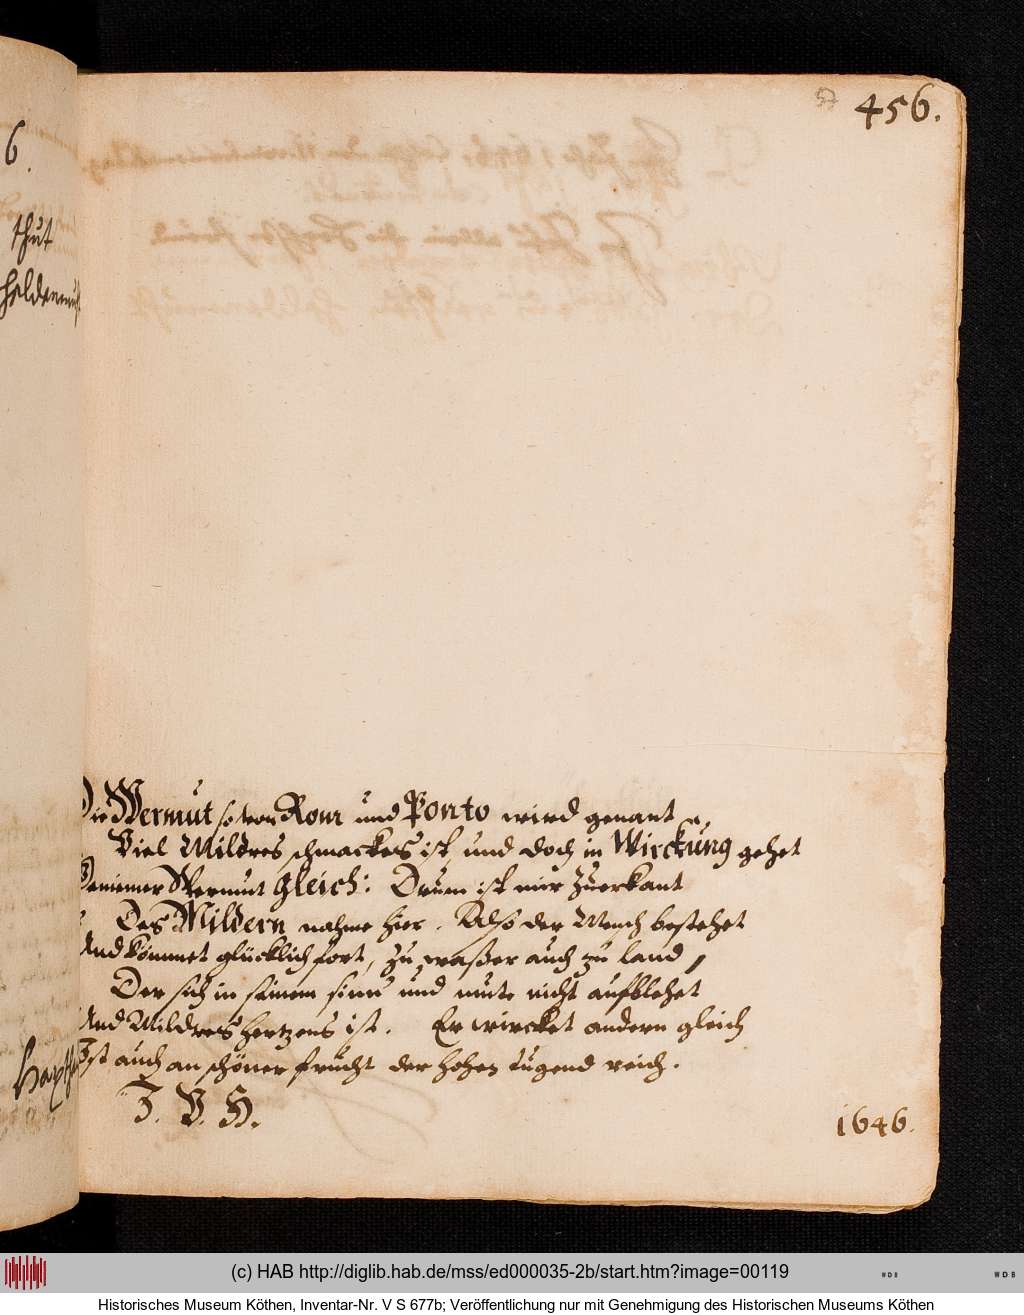 57
456.
6.
thut
heldenmuht
Die Wermut so von Rom und Ponto wird genant
Viel Mildres schmackes ist, und doch in Wirckung gehet
Gemeiner Wermut gleich: Drum ist mir zuerkant
Des Mildern nahme hier. Also der Mench bestehet
Und kömmet glücklich fort, zu waßer auch zu land,
Der sich in seinem sinn und mute nicht aufblehet
Und Mildres hertzens ist. Er wircket andern gleich
Ist auch an schöner frucht der hohen tugend reich.
F. V. H.
1646.
(c) HAB http://diglib.hab.de/mss/ed000035-2b/start.htm?image=00119
WDB
WDB
Historisches Museum Köthen, Inventar-Nr. V S 677b; Veröffentlichung nur mit Genehmigung des Historischen Museums Köthen